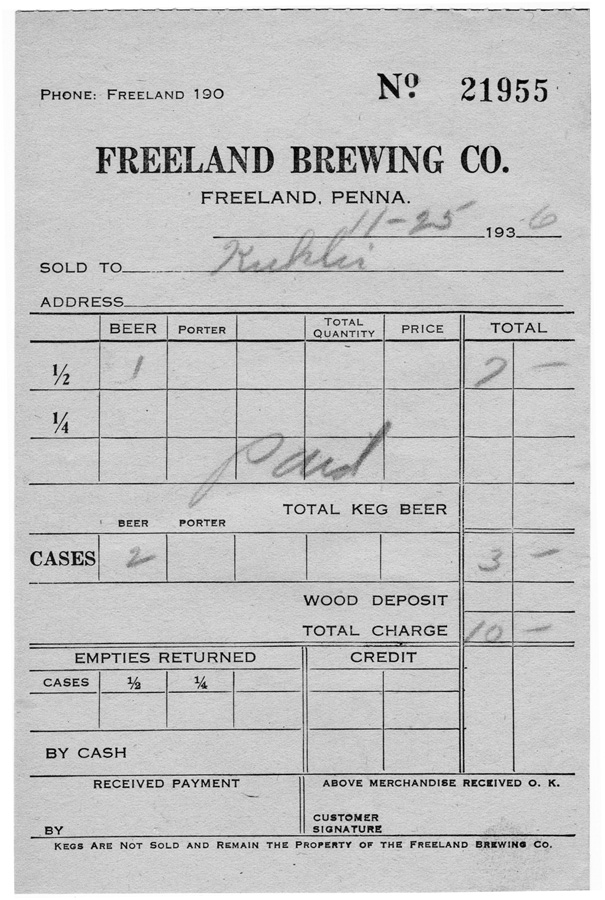 PHONE: FREELAND 190
Nº 21955
FREELAND BREWING CO.
FREELAND, PENNA.
11-25 1936
SOLD TO
ADDRESS
BEER PORTER TOTAL QUANTITY PRICE TOTAL
½ 1 7 —
¼
Paid
TOTAL KEG BEER
BEER PORTER
CASES 2 3 —
WOOD DEPOSIT
TOTAL CHARGE 10 —
EMPTIES RETURNED CREDIT
CASES ½ ¼
BY CASH
RECEIVED PAYMENT ABOVE MERCHANDISE RECEIVED O. K.
CUSTOMER
BY SIGNATURE
KEGS ARE NOT SOLD AND REMAIN THE PROPERTY OF THE FREELAND BREWING CO.